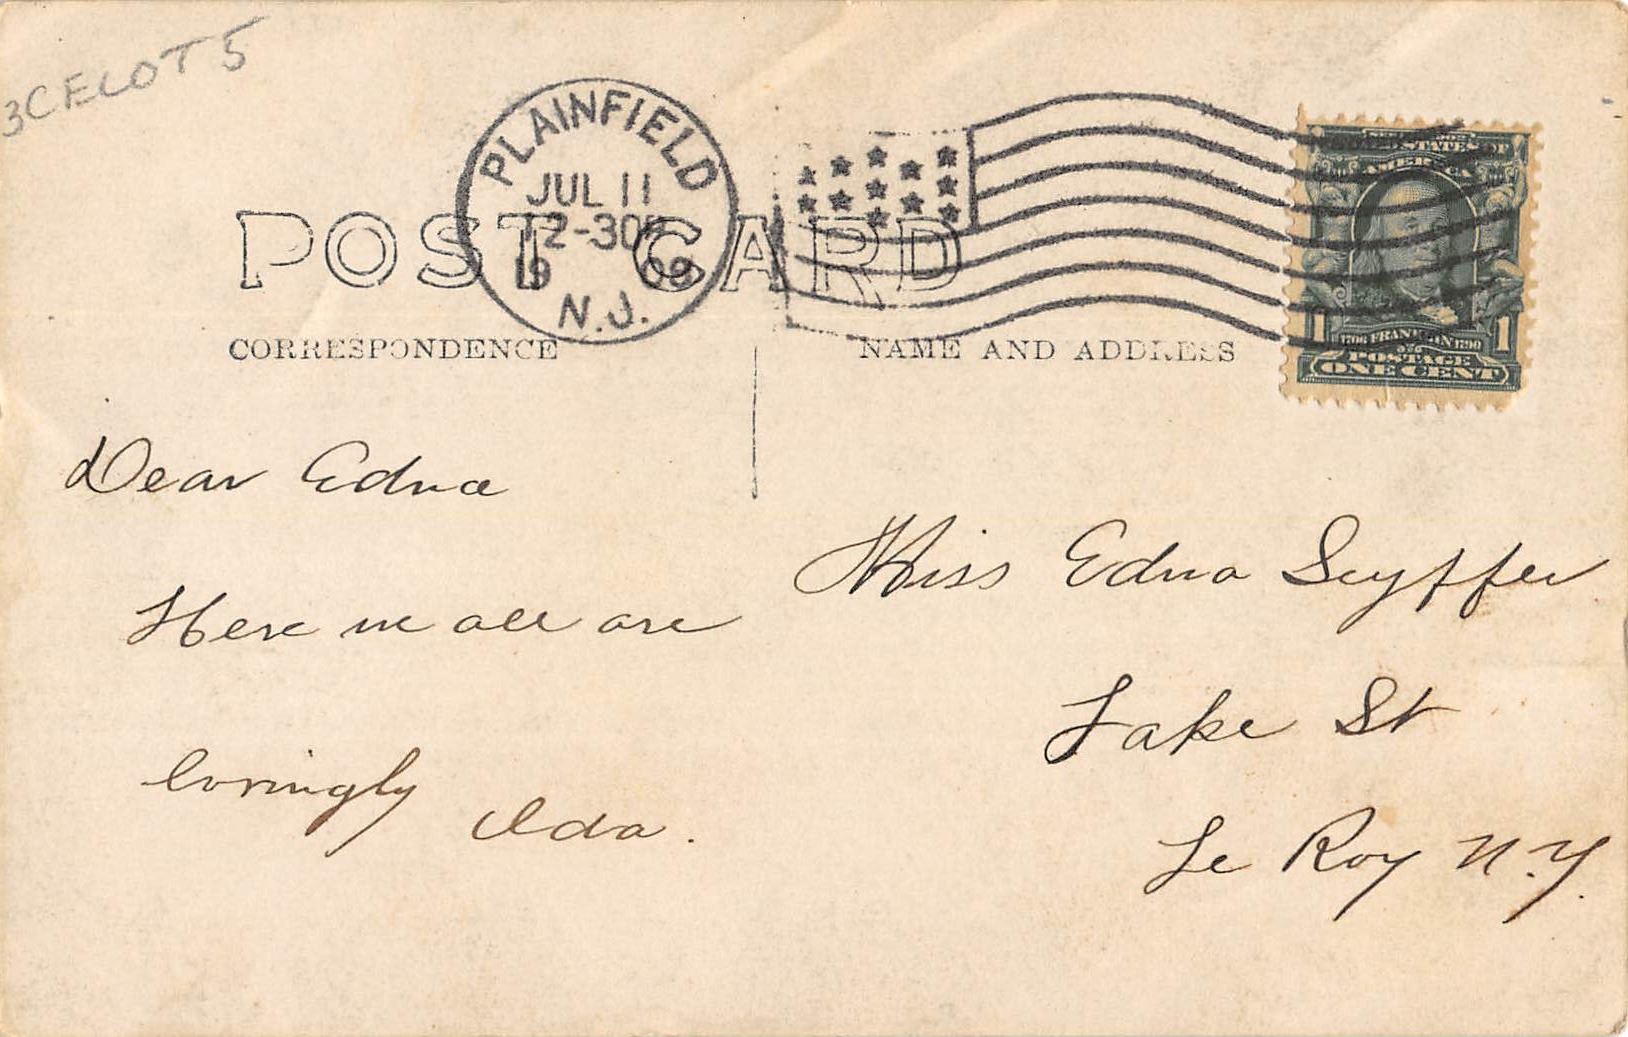 3CELOT5
PLAINFIELD
JUL 11
12-30P
1909
N.J.
POST CARD
CORRESPONDENCE
NAME AND ADDRESS
SERIES 1902
UNITED STATES OF
AMERICA
1706 FRANKLIN 1790
1 1
POSTAGE
ONE CENT
Dear Edna
Here we all are
lovingly
Ida.
Miss Edna Seyffer
Lake St
Le Roy N.Y.